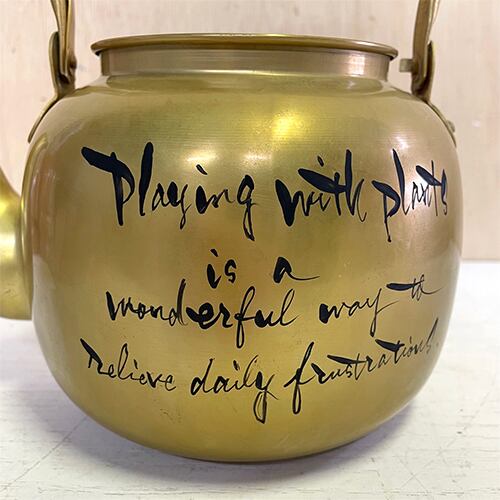 Playing with plants
is a
wonderful way to
relieve daily frustrations.